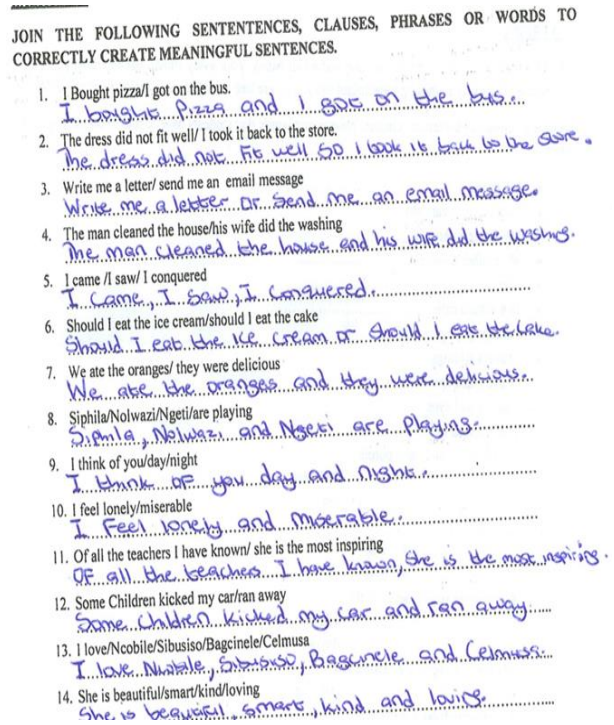 JOIN THE FOLLOWING SENTENTENCES, CLAUSES, PHRASES OR WORDS TO
CORRECTLY CREATE MEANINGFUL SENTENCES.
1. I Bought pizza/I got on the bus.
I bought Pizza and I got on the bus.
2. The dress did not fit well/ I took it back to the store.
The dress did not fit well so I took it back to the store.
3. Write me a letter/ send me an email message
Write me a letter or send me an email message.
4. The man cleaned the house/his wife did the washing
The man cleaned the house and his wife did the washing.
5. I came /I saw/ I conquered
I Came, I Saw, I Conquered.
6. Should I eat the ice cream/should I eat the cake
Should I eat the ice cream or should I eat the cake.
7. We ate the oranges/ they were delicious
We ate the oranges and they were delicious.
8. Siphila/Nolwazi/Ngeti/are playing
Siphila, Nolwazi and Ngeti are playing.
9. I think of you/day/night
I think of you day and night.
10. I feel lonely/miserable
I Feel lonely and miserable.
11. Of all the teachers I have known/ she is the most inspiring
OF all the teachers I have known, she is the most inspiring.
12. Some Children kicked my car/ran away
Some Children kicked my car and ran away
13. I love/Ncobile/Sibusiso/Bagcinele/Celmusa
I love Ncobile, Sibusiso, Bagcinele and Celmusa.
14. She is beautiful/smart/kind/loving
She is beautiful, smart, kind and loving.